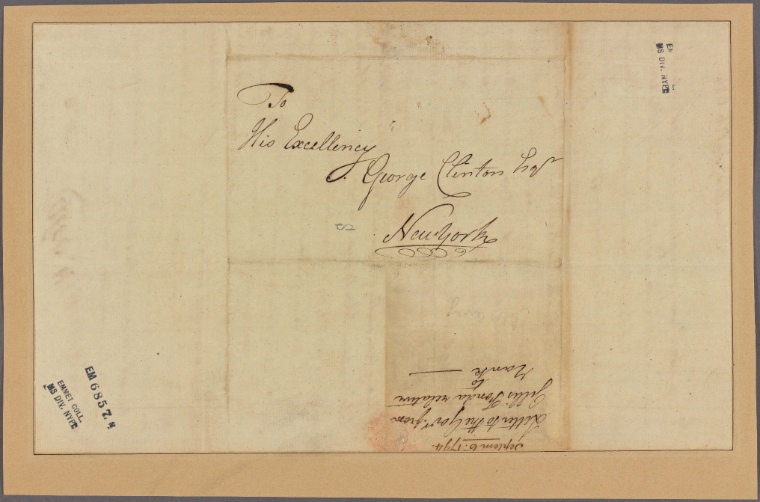 To
His Excellency
George Clinton Esqr
New York
Septem 6. 1794.
Letter to the Govr from
Jellis Fonda relative
to
EM 6857
EMMET COLL.
MS DIV. NYPL
EM
MS DIV. NYPL